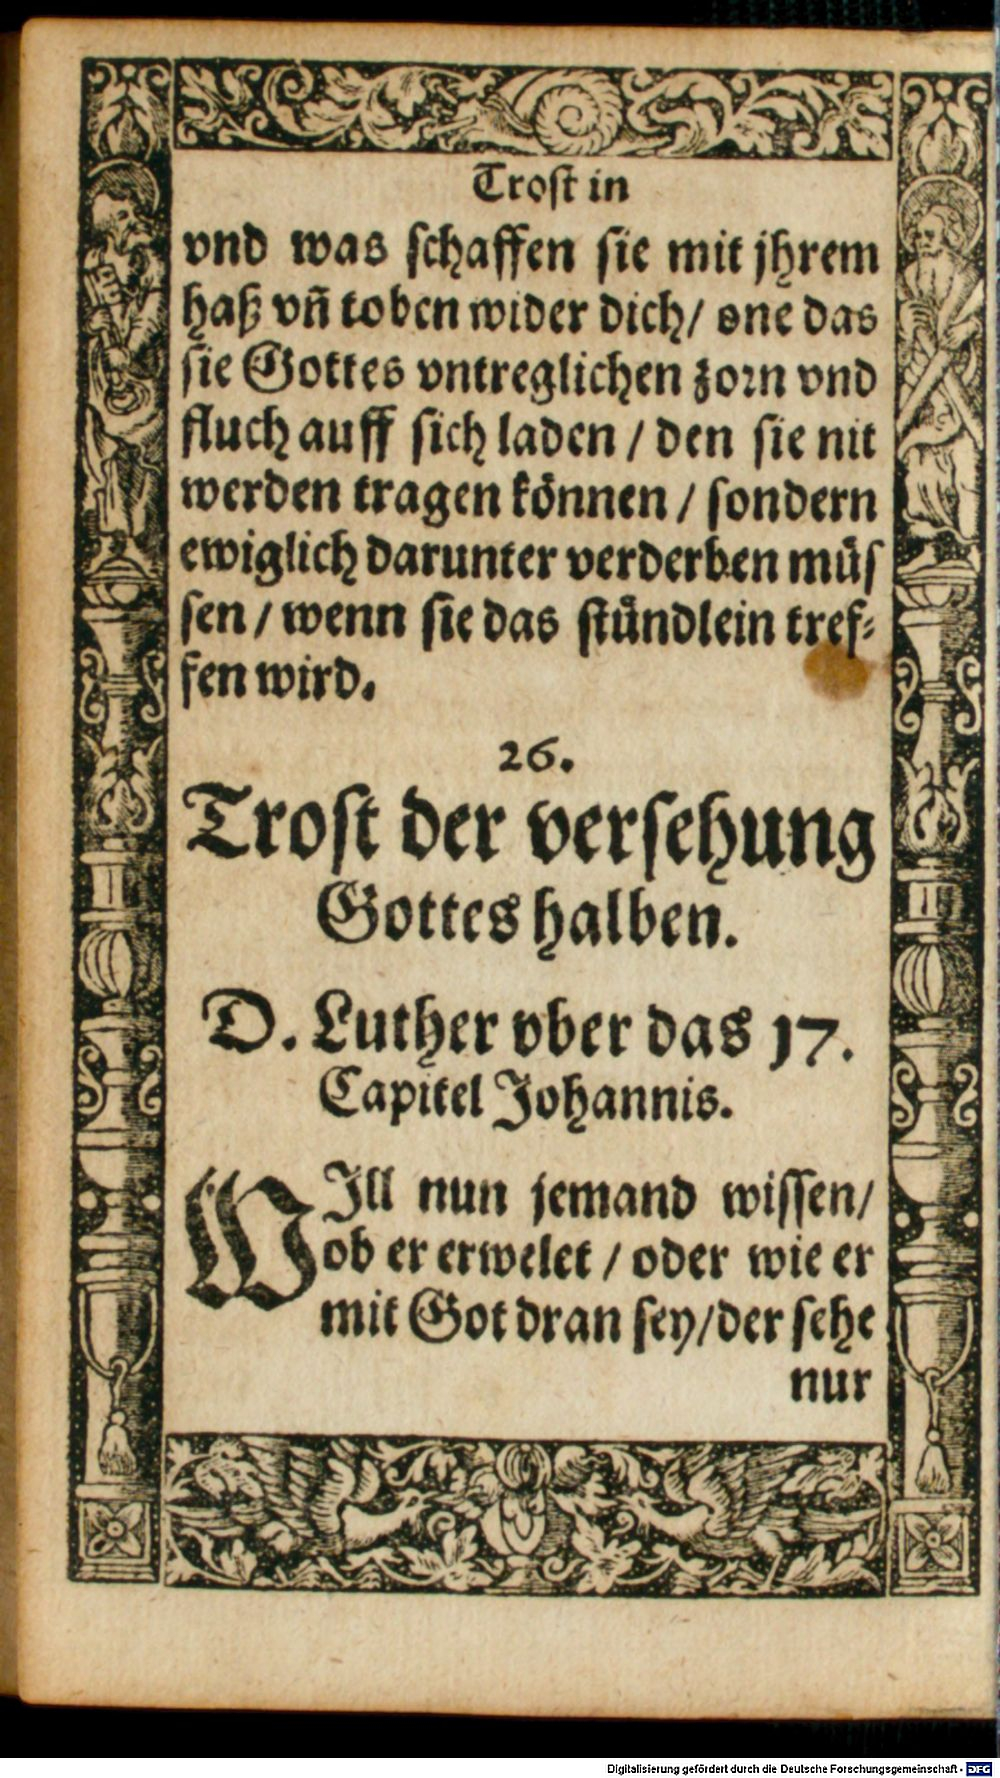 Trost in
vnd was schaffen sie mit jhrem
haß vñ toben wider dich/ one das
sie Gottes vntreglichen zorn vnd
fluch auff sich laden / den sie nit
werden tragen können / sondern
ewiglich darunter verderben müs
sen / wenn sie das stündlein tref-
fen wird.
26.
Trost der versehung
Gottes halben.
D. Luther vber das 17.
Capitel Johannis.
WIll nun jemand wissen/
ob er erwelet / oder wie er
mit Got dran sey/der sehe
nur
Digitalisierung gefördert durch die Deutsche Forschungsgemeinschaft - DFG